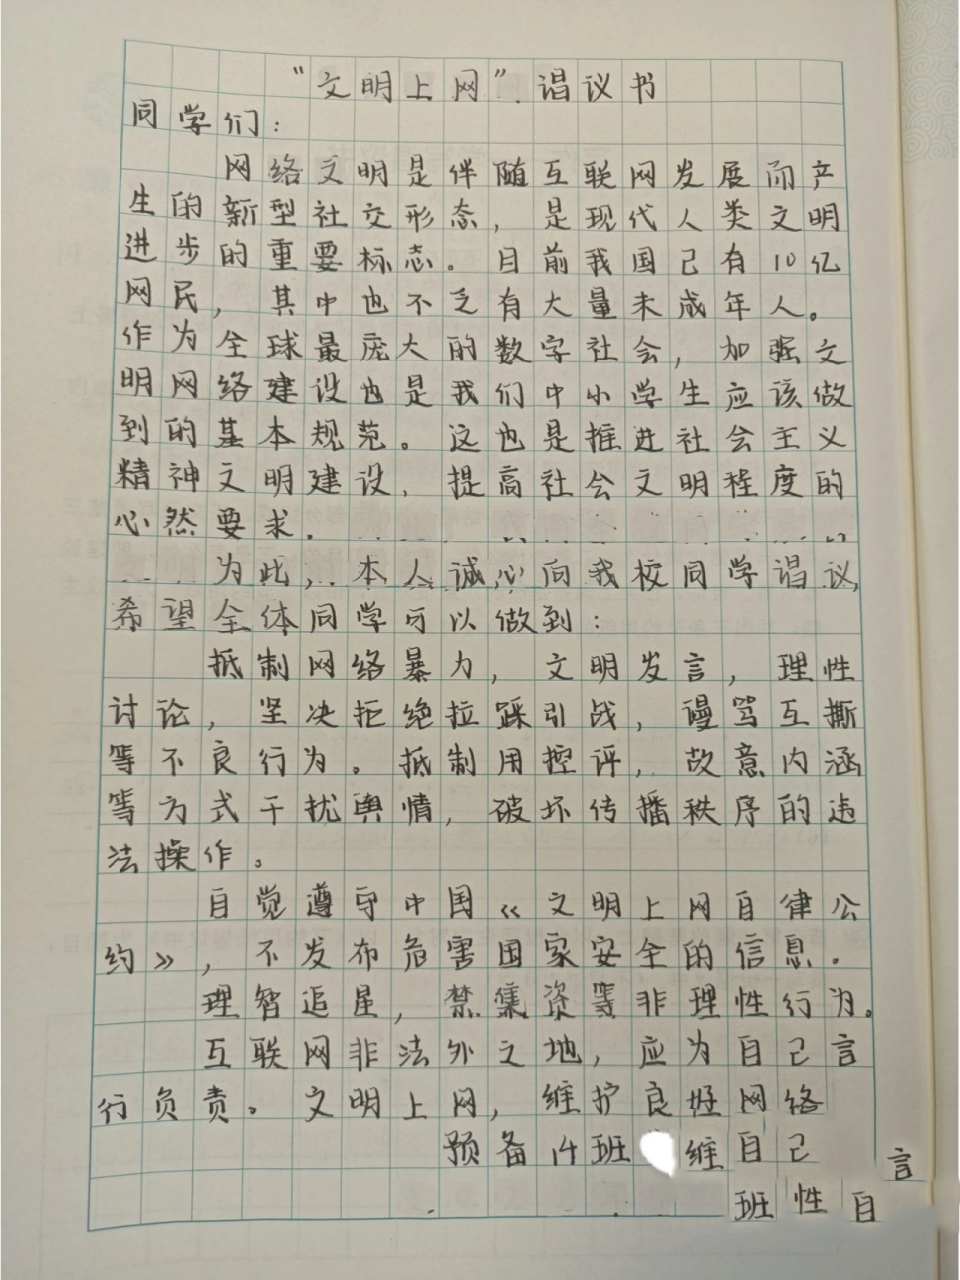 “文明上网”倡议书
同学们：
网络文明是伴随互联网发展而产
生的新型社交形态，是现代人类文明
进步的重要标志。目前我国已有10亿
网民，其中也不乏有大量未成年人。
作为全球最庞大的数字社会，加强文
明网络建设也是我们中小学生应该做
到的基本规范。这也是推进社会主义
精神文明建设，提高社会文明程度的
必然要求。
为此，本人诚心向我校同学倡议，
希望全体同学可以做到：
抵制网络暴力，文明发言，理性
讨论，坚决拒绝拉踩引战，谩骂互撕
等不良行为。抵制用控评，故意内涵
等方式干扰舆情，破坏传播秩序的违
法操作。
自觉遵守中国《文明上网自律公
约》，不发布危害国家安全的信息。
理智追星，禁集资等非理性行为。
互联网非法外之地，应为自己言
行负责。文明上网，维护良好网络
预备14班 维自己
言
班性自